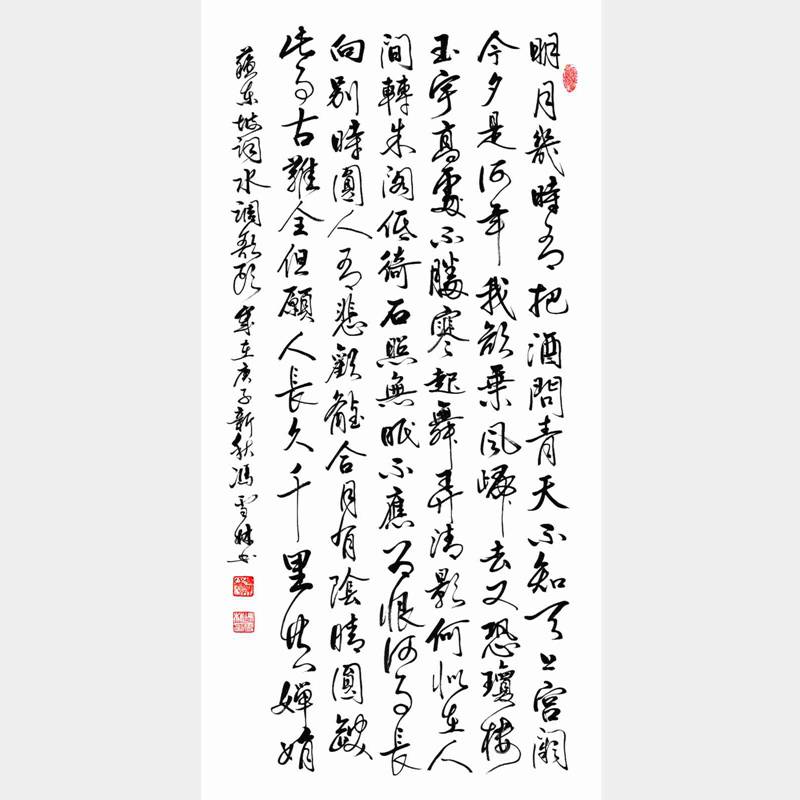 明月幾時有把酒問青天不知天上宮闕
今夕是何年我欲乘風歸去又恐瓊樓
玉宇高處不勝寒起舞弄清影何似在人
間轉朱閣低綺戶照無眠不應有恨何事長
向別時圓人有悲歡離合月有陰晴圓缺
此事古難全但願人長久千里共嬋娟
蘇東坡詞水調歌頭歲在庚子新秋馮雪林書